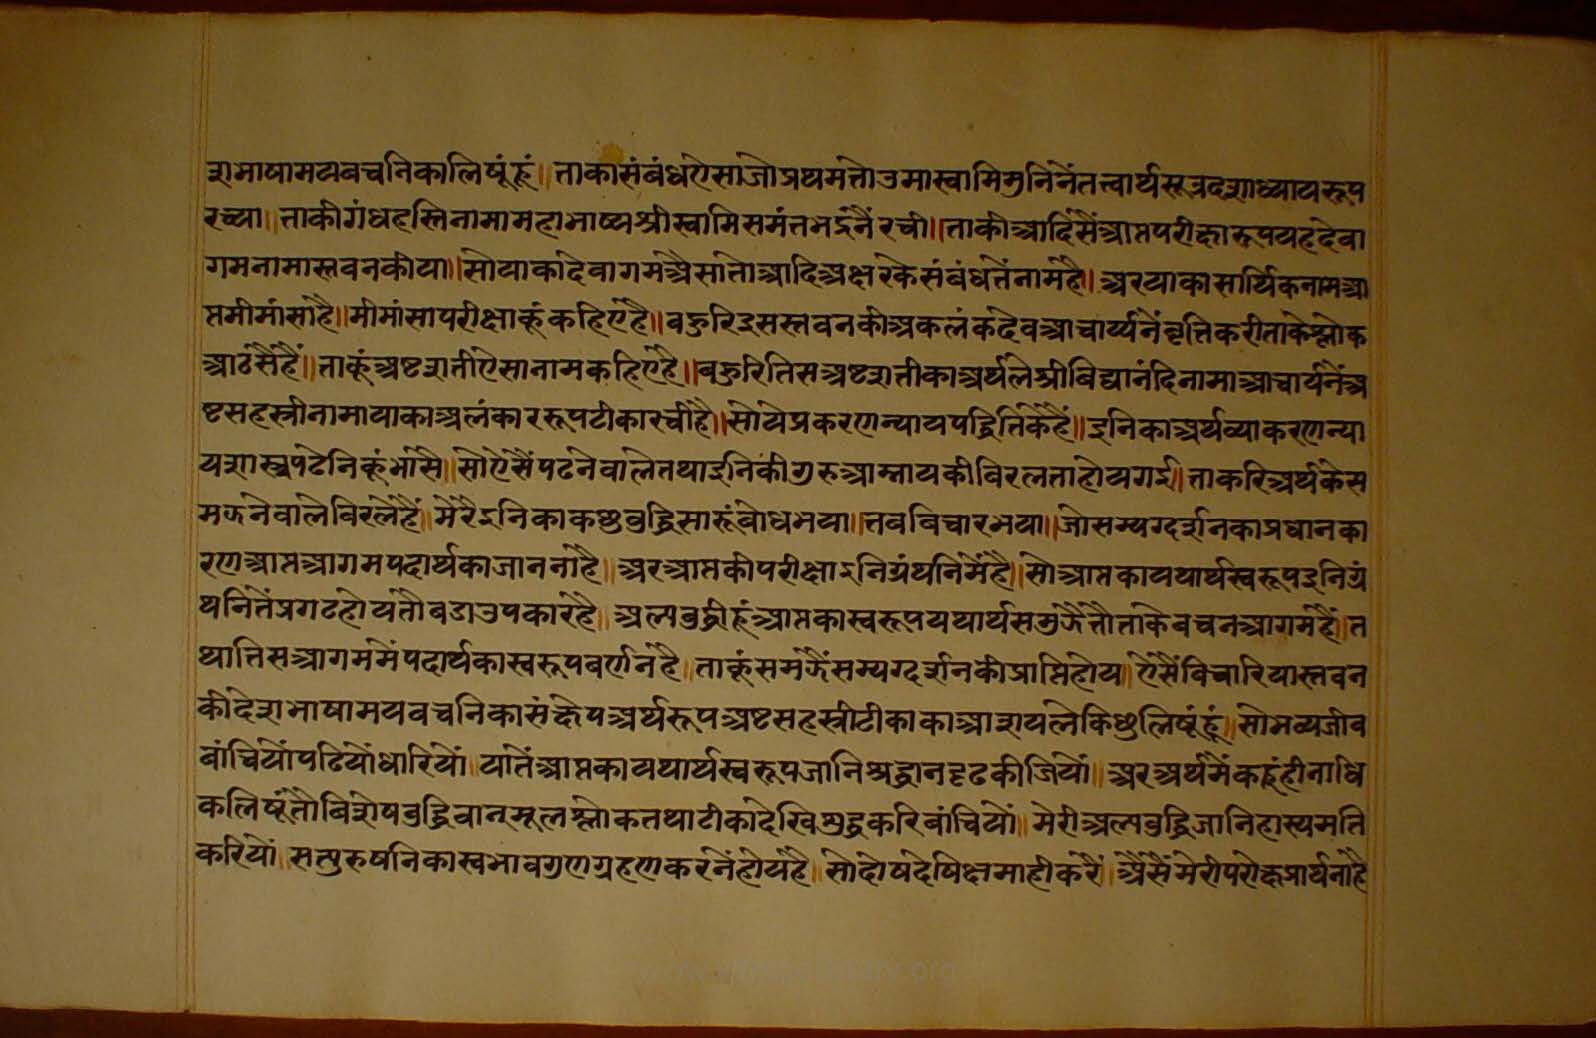 शभाषामयबचनिकालिषूंहूं॥ताकासंबंधऐसाजोप्रथमतोउमास्वामिमुनिनेंतत्वार्थसूत्रदशाध्यायरूप
रच्या॥ताकीगंधहस्तिनामामहाभाष्यश्रीस्वामिसमंतभद्रंनैंरची॥ताकीआदिंसैंआप्तपरीक्षारूपयहदेवा
गमनामास्तवनकीया॥सोयाकादेवागमअैसातोआदिअक्षरकेसंबंधतेंनामहै॥अरयाकासार्थिकनामआ
प्तमीमांसाहै॥मीमांसापरीक्षाकूंकहिएहै॥बहुरिइसस्तवनकीअकलंकदेवआचार्य्यनेंवृत्तिकरीताकेश्लोक
आठसैहैं॥ताकूंअष्टशतीऐसानामकहिएहै॥बहुरितिसअष्टशतीकाअर्थलेश्रीबिद्यानंदिनामाआचार्यनेंअ
ष्टसहस्त्रीनामायाकाअलंकाररूपटीकारचीहै॥सोयेप्रकरणन्यायपद्धितिकेहैं॥इनिकाअर्थव्याकरणन्या
यशास्त्रपढेनिकूंभासै॥सोऐसैंपढनेवालेतथाइनिकीगुरुआम्नायकीबिरलताहोयगई॥ताकरिअर्थकेस
मऊनेवालेविरलेहैं॥मेरैइनिकाकछुबुद्धिसारूंबोधभया॥तवबिचारभया॥जोसम्यग्दर्शनकाप्रधानका
रणआप्तआगमपदार्थकाजाननाहै॥अरआप्तकीपरीक्षाइनिग्रंथनिमेंहै॥सोआप्तकायथार्थस्वरूपइनिग्रं
थनितेंप्रगटहोयतौबडाउपकारहै॥अल्पबुद्धीहूंआप्तकास्वरूपयथार्थसमुऊैंतौताकेबचनआगमहैं॥त
थातिसआगममेंपदार्थकास्वरूपबर्णनहै॥ताकूंसमऊैंसम्यग्दर्शनकीप्राप्तिहोय॥ऐसैंबिचारियास्तवन
कीदेशभाषामयवचनिकासंक्षेपअर्थरूपअष्टसहस्त्रीटीकाकाआशयलेकिछुलिषूंहूं॥सोभव्यजीव
बांचियोंपढियोंधारियों॥यातेंआप्तकायथार्थस्वरूपजानिश्रद्धानदृढकीजियों॥अरअर्थमेंकहूंहीनाधि
कलिषूंतौबिशेषबुद्धिवानमूलश्लोकतथाटीकादेखिशुद्धकरिबांचियों॥मेरीअल्पबुद्धिजानिहास्यमति
करियों॥सत्पुरुषनिकास्वभावगुणग्रहणकरनेंहोयहै॥सोदोषदेषिक्षमाहीकरैं॥अैसैंमेरीपरोक्षप्रार्थनाहै